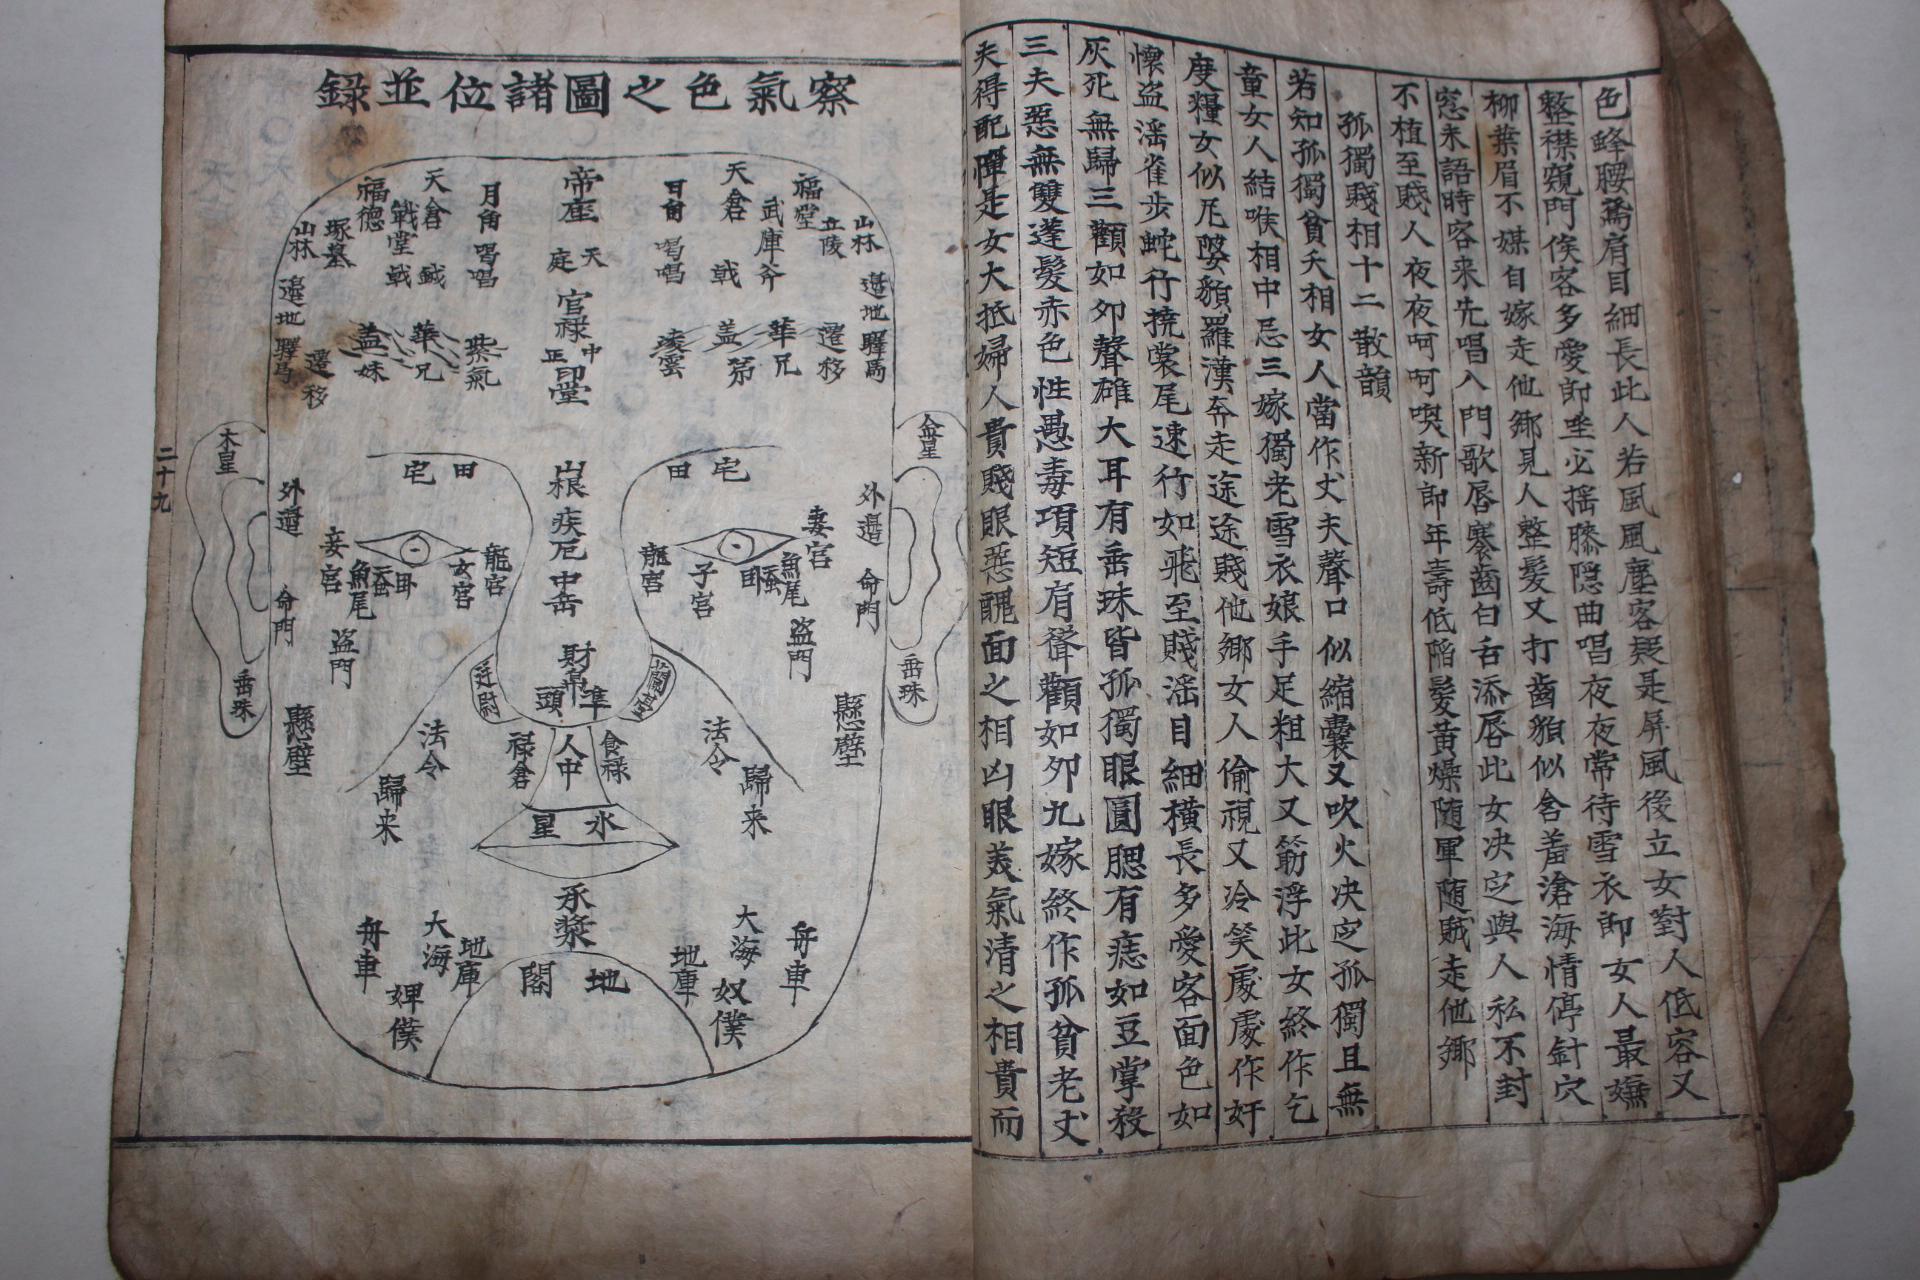 色蜂腰鳶肩目細長此人若風風塵客疑是屏風後立女對人低容又
整襟窺門俟客多愛即坐必搖膝隱曲唱夜夜常待雪衣郎女人最嫌
柳葉眉不媒自嫁走他鄉見人整髮又打齒貌似含羞滄海情停針穴
窓未語時客來先唱入門歌唇褰齒白舌添唇此女决定與人私不封
不植至賤人夜夜呵呵喫新郎年壽低陷髮黃燥随軍随賊走他鄉
孤獨賤相十二散韻
若知孤獨貧夭相女人當作丈夫聲口似縮囊又吹火决定孤獨且無
童女人結喉相中忌三嫁獨老雪衣娘手足粗大又筋浮此女終作乞
度糧女似尼婆貌羅漢奔走途途賤他鄉女人偷視又冷笑處處作奸
懷盜淫雀步蛇行撓裳尾速行如飛至賤淫目細橫長多愛客面色如
灰死無歸三顴如夘聲雄大耳有垂珠皆孤獨眼圓腮有痣如豆掌殺
三夫惡無雙蓬髮赤色性愚毒項短有聳顴如夘九嫁終作孤貧老丈
夫得配憚是女大抵婦人貴賤眼惡醜面之相凶眼美氣清之相貴而
察氣色之圖諸位並錄
帝座
天庭
官祿
中正
印堂
山根
疾厄
中岳
財帛
準頭
人中
水星
承漿
地閣
日角
喝唱
天倉
戟
武庫
斧
福堂
立陵
山林
邊地
驛馬
遷移
華
兄
盖
弟
凌雲
月角
喝唱
天倉
鉞
戰堂
戟
福德
塚墓
山林
邊地
驛馬
遷移
盖
妹
華
兄
紫氣
宅田
田宅
金星
木星
外邊
命門
垂珠
懸壁
外邊
命門
垂珠
懸壁
妻宮
魚尾
蚕
子宮
龍宮
盜門
妾宮
魚尾
蚕
女宮
龍宮
盜門
蘭臺
廷尉
食祿
祿倉
法令
歸來
法令
歸來
大海
地庫
舟車
奴僕
大海
地庫
舟車
婢僕
二十九